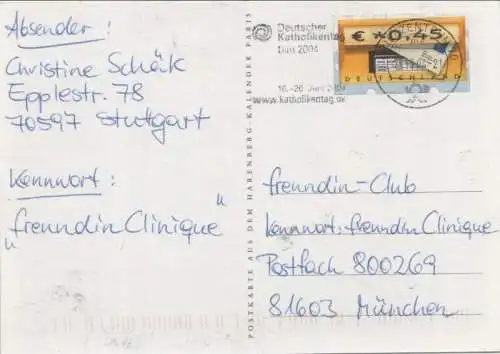 Absender:
Christine Schäk
Epplestr. 78
70597 Stuttgart
Kennwort:
„freundin Clinique"
POSTKARTE AUS DEM HARENBERG-KALENDER PARIS
Deutscher
Katholikentag
Ulm 2004
16.-20. Juni 2004
www.katholikentag.de
€ *0,45
DEUTSCHLAND
freundin-Club
Kennwort: freundin Clinique
Postfach 800269
81603 München